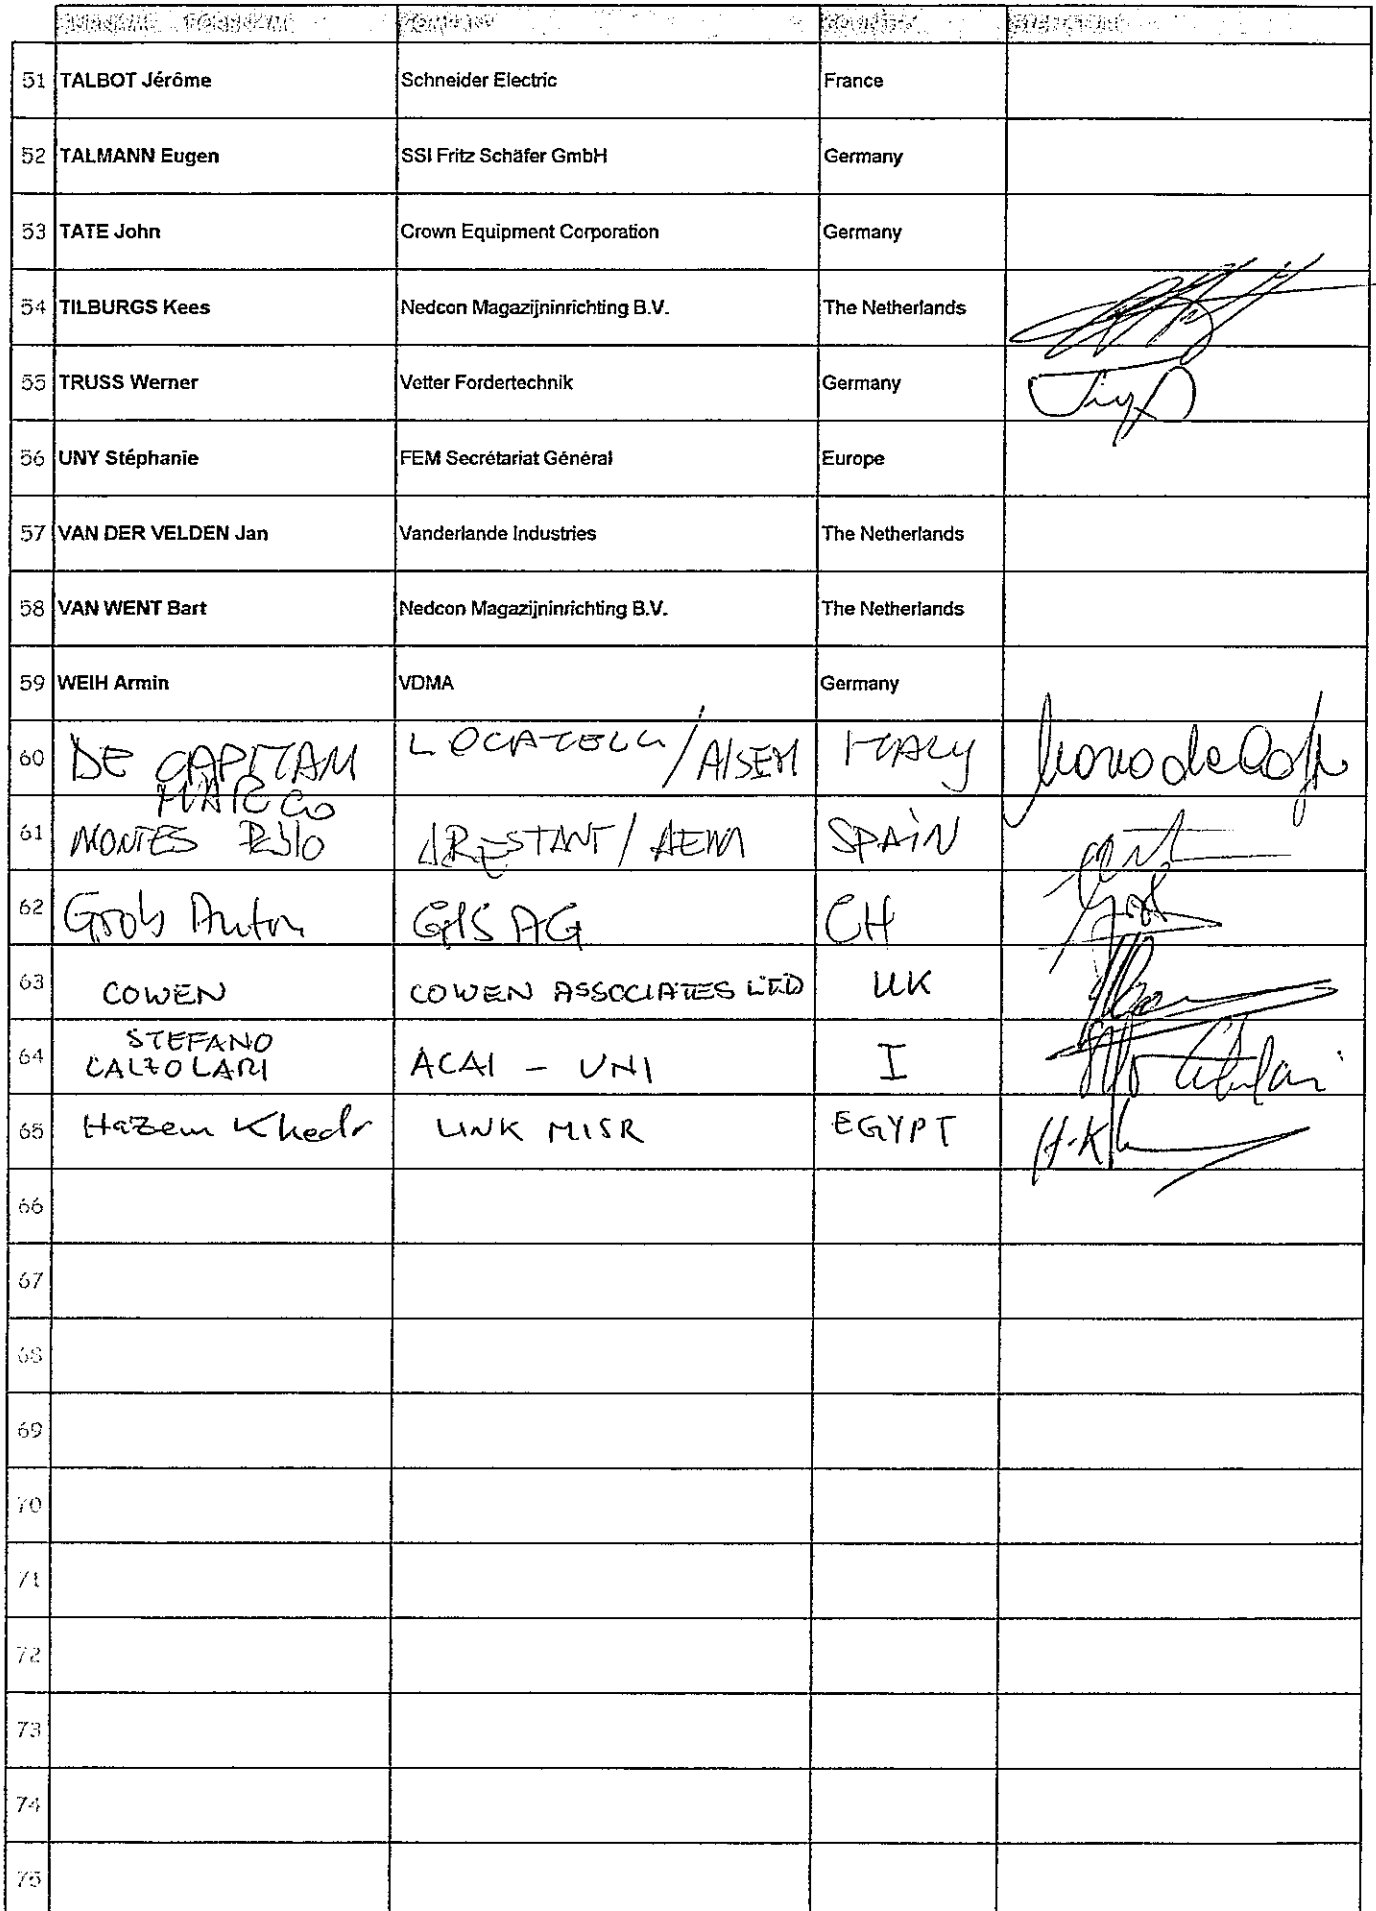 51 TALBOT Jérôme Schneider Electric France
52 TALMANN Eugen SSI Fritz Schäfer GmbH Germany
53 TATE John Crown Equipment Corporation Germany
54 TILBURGS Kees Nedcon Magazijninrichting B.V. The Netherlands
55 TRUSS Werner Vetter Fordertechnik Germany
56 UNY Stéphanie FEM Secrétariat Général Europe
57 VAN DER VELDEN Jan Vanderlande Industries The Netherlands
58 VAN WENT Bart Nedcon Magazijninrichting B.V. The Netherlands
59 WEIH Armin VDMA Germany
60 DE CAPITANI LOCATELLI/AISEM ITALY
MARCO
61 MONTES SPAIN
62 Grob Anton GIS AG CH
63 COWEN COWEN ASSOCIATES LTD UK
STEFANO
64 CALZOLARI ACAI - UNI I
65 Hazem Khedr LINK MISR EGYPT H.K
66
67
68
69
70
71
72
73
74
75